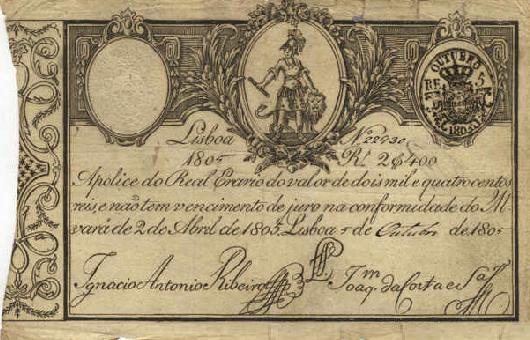 OUTUBRO
1805
Lisboa Nº 22230
1805 Rs. 2$400
Apolice do Real Erario do valor de dois mil e quatrocentos
reis, e não tem vencimento de juro na conformidade do Al
vará de 2 de Abril de 1805. Lisboa 5 de Outubro de 1805
Ignacio Antonio Ribeiro Joaqm da Costa e Sa